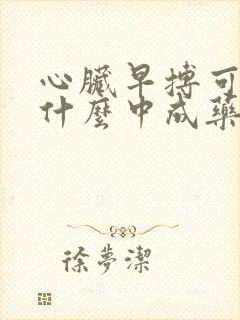 心臟早搏可
什麼中成藥
徐夢潔